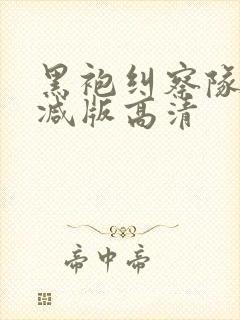 黑袍纠察队
减版高清
帝中帝